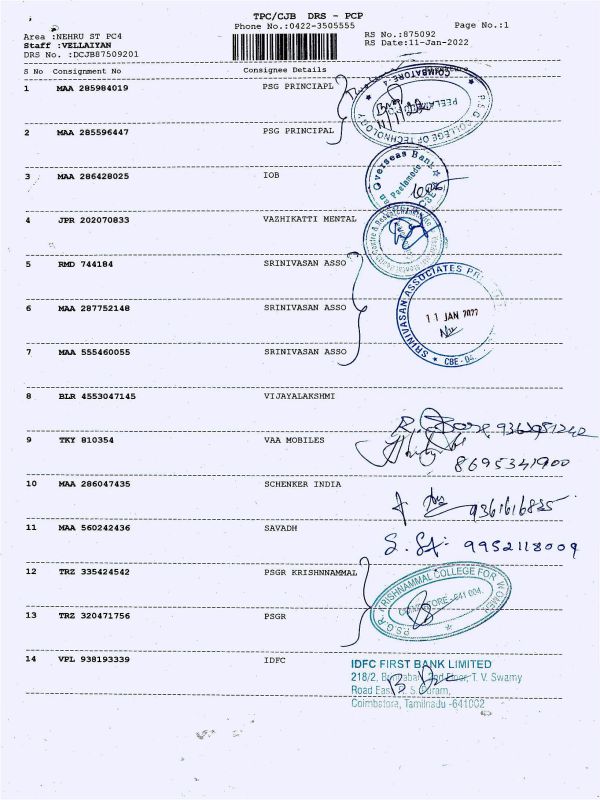 TPC/CJB DRS - PCP
Phone No.:0422-3505555
Page No.:1
Area :NEHRU ST PC4
Staff :VELLAIYAN
DRS No. :DCJB87509201
RS No.:875092
RS Date:11-Jan-2022
S No Consignment No Consignee Details
1 MAA 285984019 PSG PRINCIAPL
COIMBATORE-4
PEELAMEDU
P.S.G. COLLEGE OF TECHNOLOGY
2 MAA 285596447 PSG PRINCIPAL
3 MAA 286428025 IOB
Overseas Bank
Peelamedu
4 JPR 202070833 VAZHIKATTI MENTAL
5 RMD 744184 SRINIVASAN ASSO
6 MAA 287752148 SRINIVASAN ASSO
SRINIVASAN ASSOCIATES
11 JAN 2022
CBE - 04.
7 MAA 555460055 SRINIVASAN ASSO
8 BLR 4553047145 VIJAYALAKSHMI
9 TKY 810354 VAA MOBILES
8695341900
10 MAA 286047435 SCHENKER INDIA
9361616835
11 MAA 560242436 SAVADH
9952118009
12 TRZ 335424542 PSGR KRISHNNAMMAL
P.S.G.R. KRISHNAMMAL COLLEGE FOR WOMEN
COIMBATORE - 641 004.
13 TRZ 320471756 PSGR
14 VPL 938193339 IDFC
IDFC FIRST BANK LIMITED
218/2, 2nd Floor, T. V. Swamy
Road East, R. S. Puram,
Coimbatore, Tamilnadu -641002